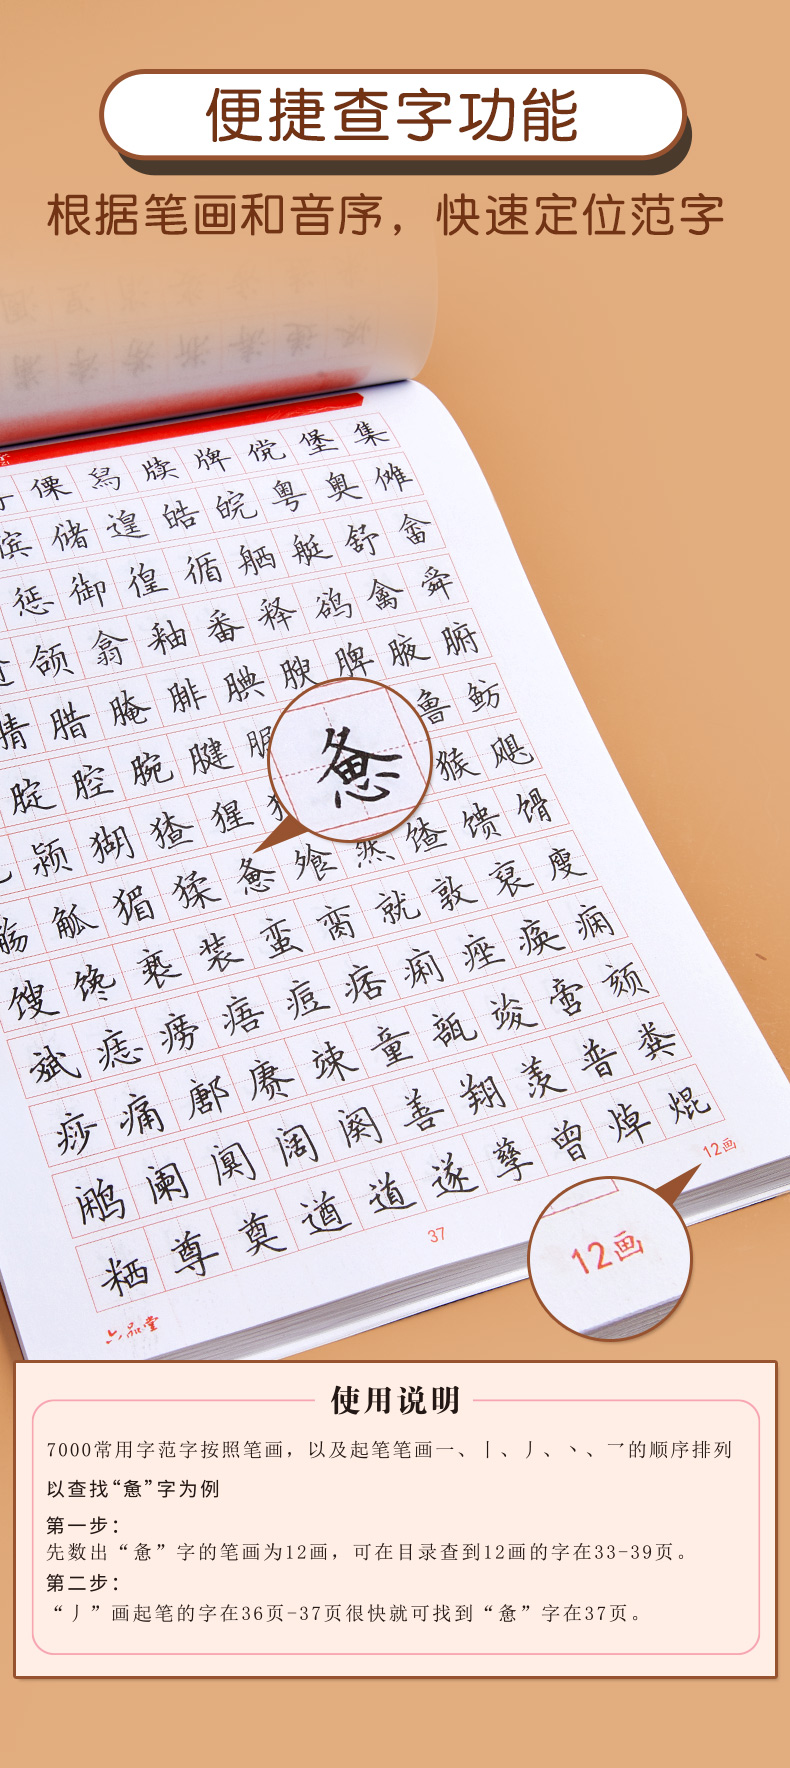 便捷查字功能
根据笔画和音序，快速定位范字
傈 舄 牍 牌 傥 堡 集
傧 储 遑 皓 皖 粤 奥 傩
惩 御 徨 循 舾 艇 舒 畲
颌 翕 釉 番 释 鹆 禽 舜
腈 腊 腌 腓 腆 腴 脾 腋 腑
腚 腔 腕 腱 鲁 鲂
颍 猢 猹 猩 猴 飓
觞 觚 猸 猱 惫 飧 然 馇 馈 馉
馊 馋 亵 装 蛮 脔 就 敦 裒 廋
斌 痣 痨 痦 痘 痞 痢 痤 痪 痫
痧 痛 鄜 赓 竦 童 瓿 竣 啻 颏
鹇 阑 阒 阔 阕 善 翔 羡 普 粪
粞 尊 奠 遒 道 遂 孳 曾 焯 焜
惫
12画
37
12画
六品堂
使用说明
7000常用字范字按照笔画，以及起笔笔画一、丨、丿、丶、乛的顺序排列
以查找“惫”字为例
第一步：
先数出“惫”字的笔画为12画，可在目录查到12画的字在33-39页。
第二步：
“丿”画起笔的字在36页-37页很快就可找到“惫”字在37页。